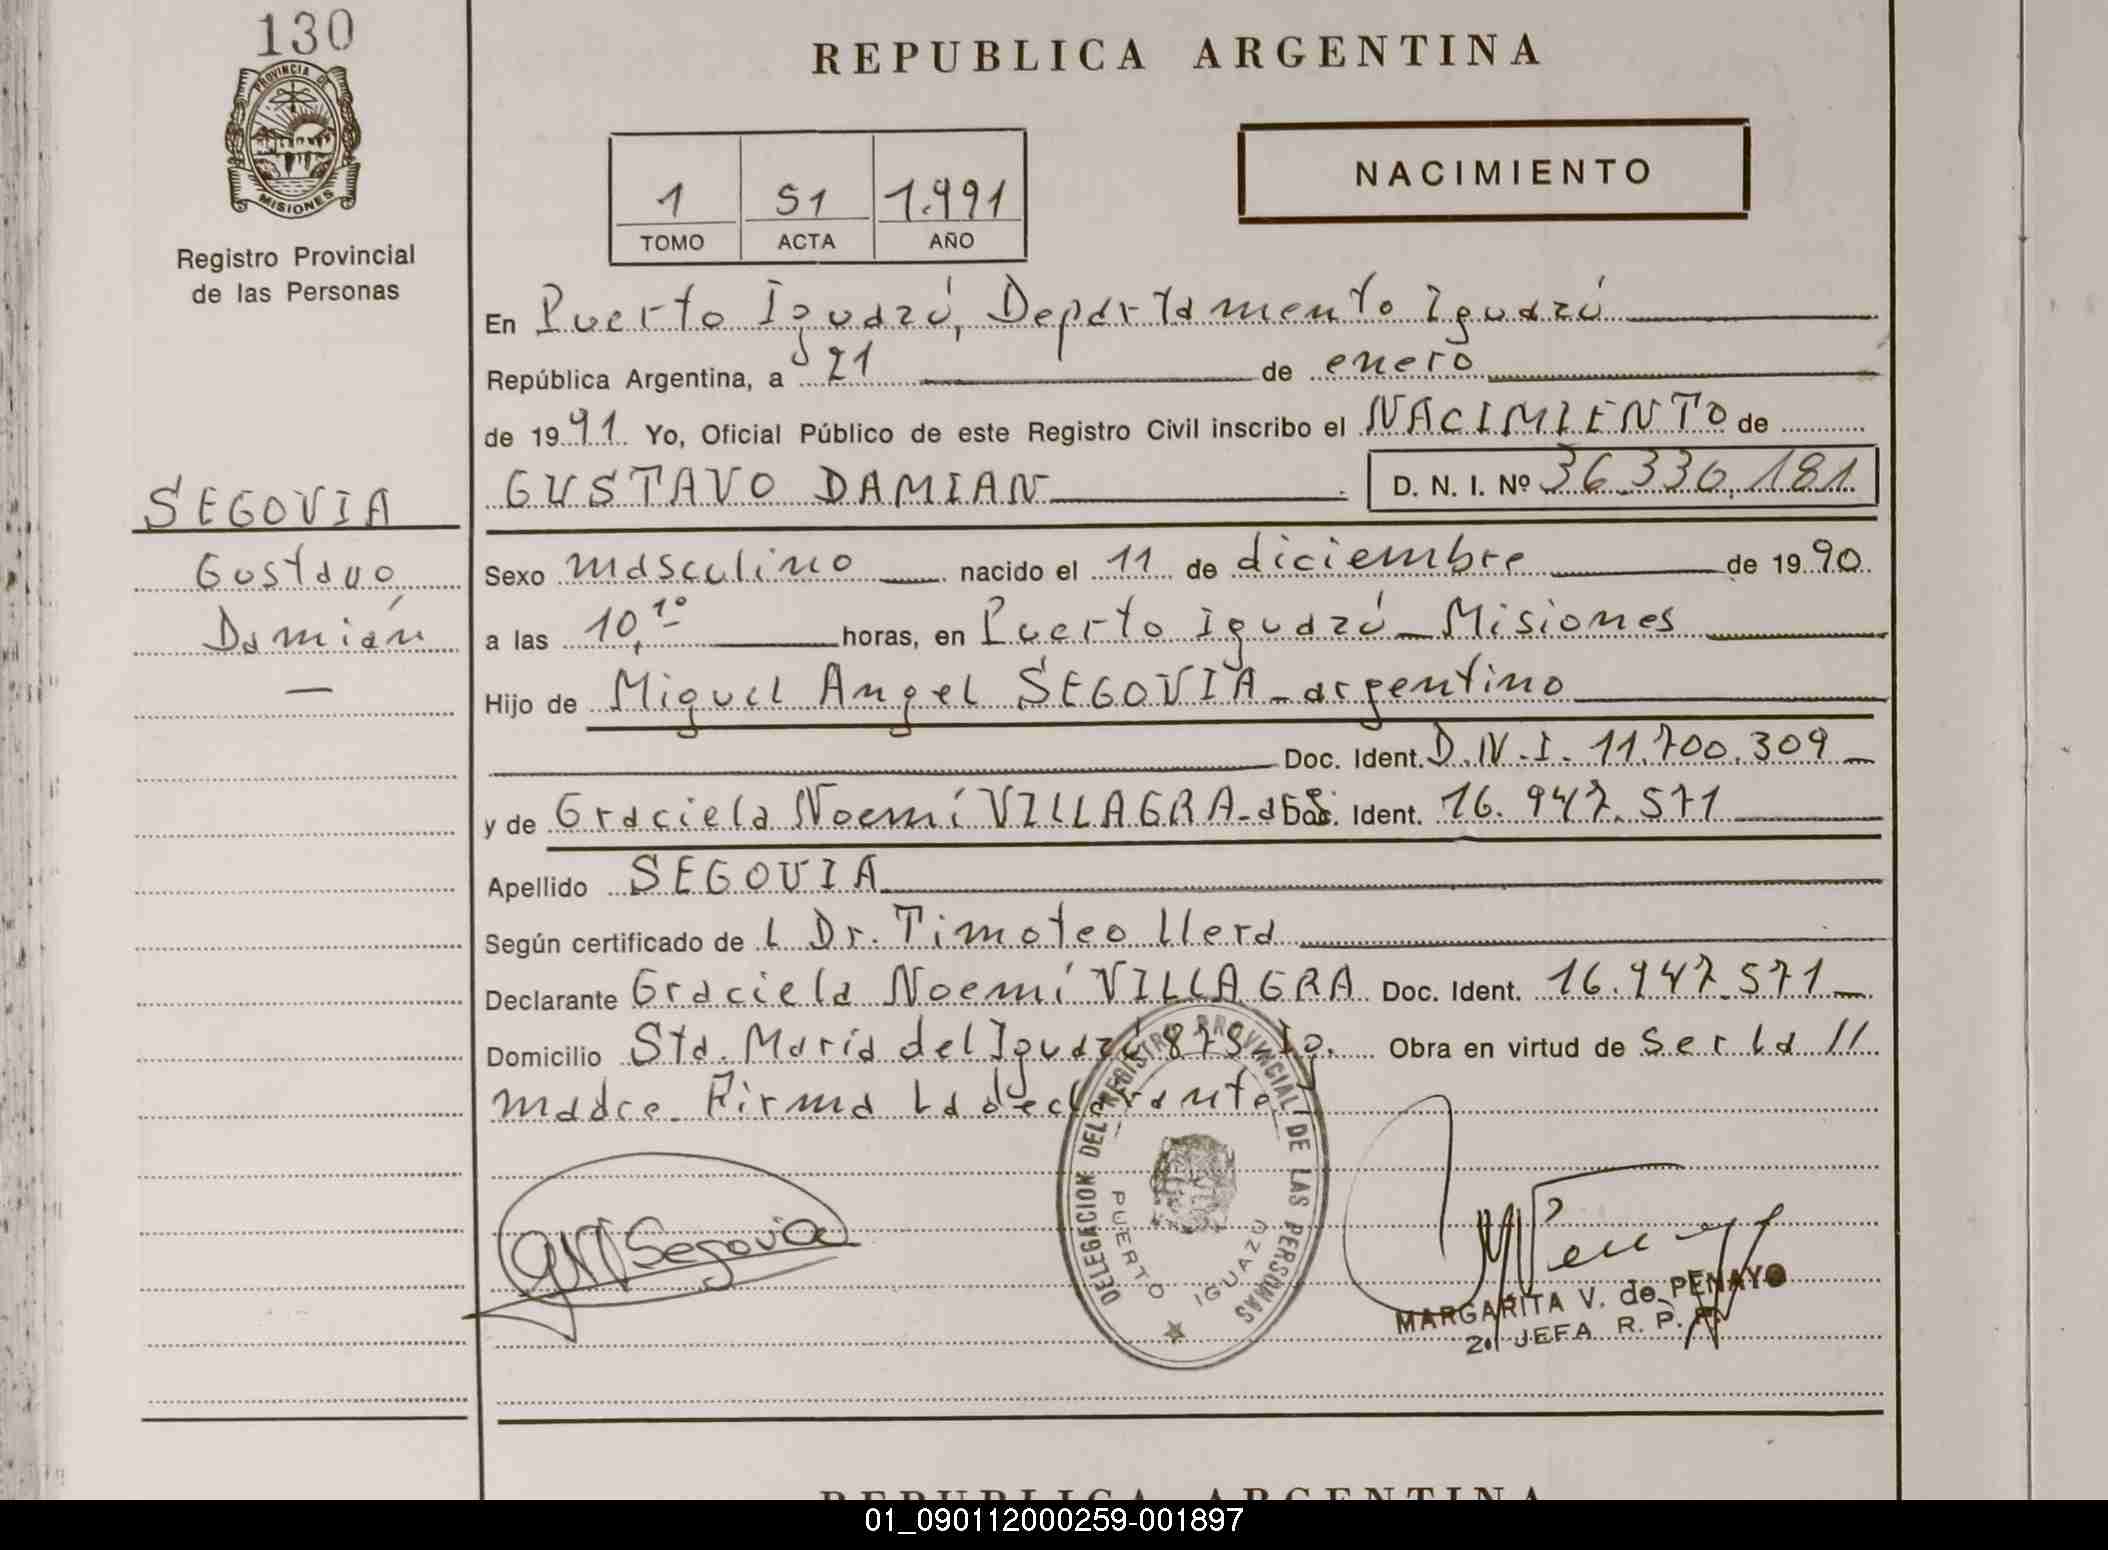 130
REPUBLICA ARGENTINA
PROVINCIA DE
MISIONES
NACIMIENTO
1 51 1.991
TOMO ACTA AÑO
Registro Provincial
de las Personas
En Puerto Iguazú, Departamento Iguazú
República Argentina, a 21 de enero
de 1991. Yo, Oficial Público de este Registro Civil inscribo el NACIMIENTO de
GUSTAVO DAMIAN D. N. I. Nº 36.330.181
SEGOVIA
Gustavo
Damián
—
Sexo masculino nacido el 11 de diciembre de 1990
a las 10,10 horas, en Puerto Iguazú - Misiones
Hijo de Miguel Angel SEGOVIA - argentino
Doc. Ident. D.N.I. 11.700.309
y de Graciela Noemí VILLAGRA - Doc. Ident. 16.947.571
Apellido SEGOVIA
Según certificado de l Dr. Timoteo Llera
Declarante Graciela Noemí VILLAGRA Doc. Ident. 16.947.571
Domicilio Sta. María del Iguazú Ig. Obra en virtud de ser la //
madre. Firma la declarante
GNV Segovia
DELEGACION DEL REGISTRO PROVINCIAL DE LAS PERSONAS
PUERTO IGUAZU
MARGARITA V. de PENAYO
2ª JEFA R. P.
REPUBLICA ARGENTINA
01_090112000259-001897